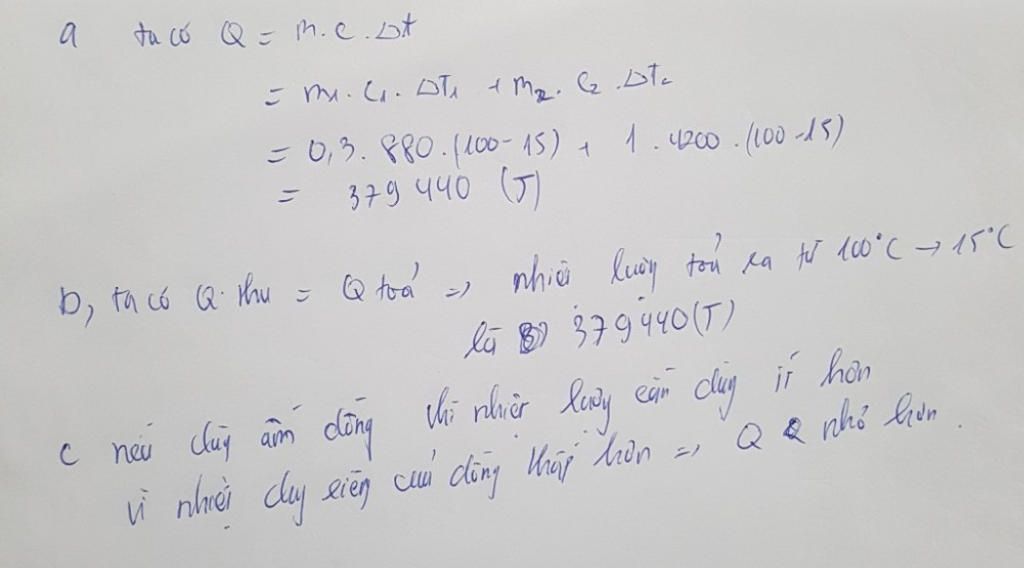 a ta có Q = m.c.Δt
= m₁.C₁.ΔT₁ + m₂.C₂.ΔT₂
= 0,3.880.(100-15) + 1.4200.(100-15)
= 379 440 (J)
b, ta có Q thu = Q toả => nhiệt lượng toả ra từ 100°C → 15°C
là 379440(J)
c nếu dùng ấm đồng thì nhiệt lượng cần dùng ít hơn
vì nhiệt dung riêng của đồng thấp hơn => Q nhỏ hơn.